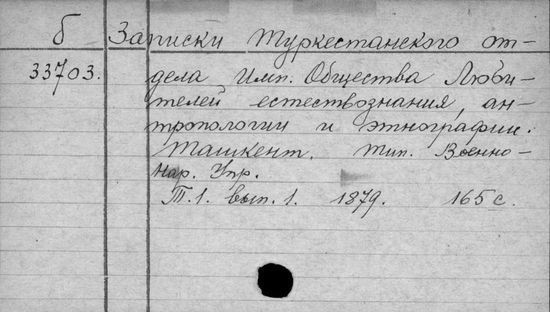 б Записки Туркестанского от-
33703. дела Имп. Общества Люби-
телей естествознания, ан-
тропологии и этнографии.
Ташкент. Тип. Военно-
Нар. Упр.
Т.1. вып.1. 1879. 165 с.